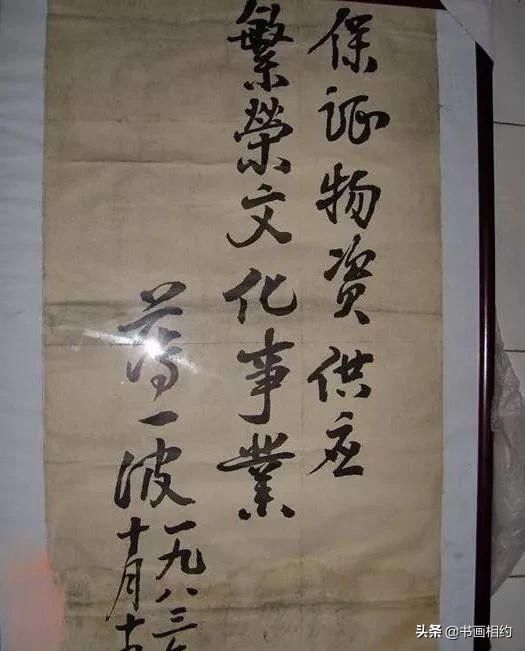 保证物资供应
繁榮文化事業
薄一波
一九八三年
十月十
头条 @书画相约